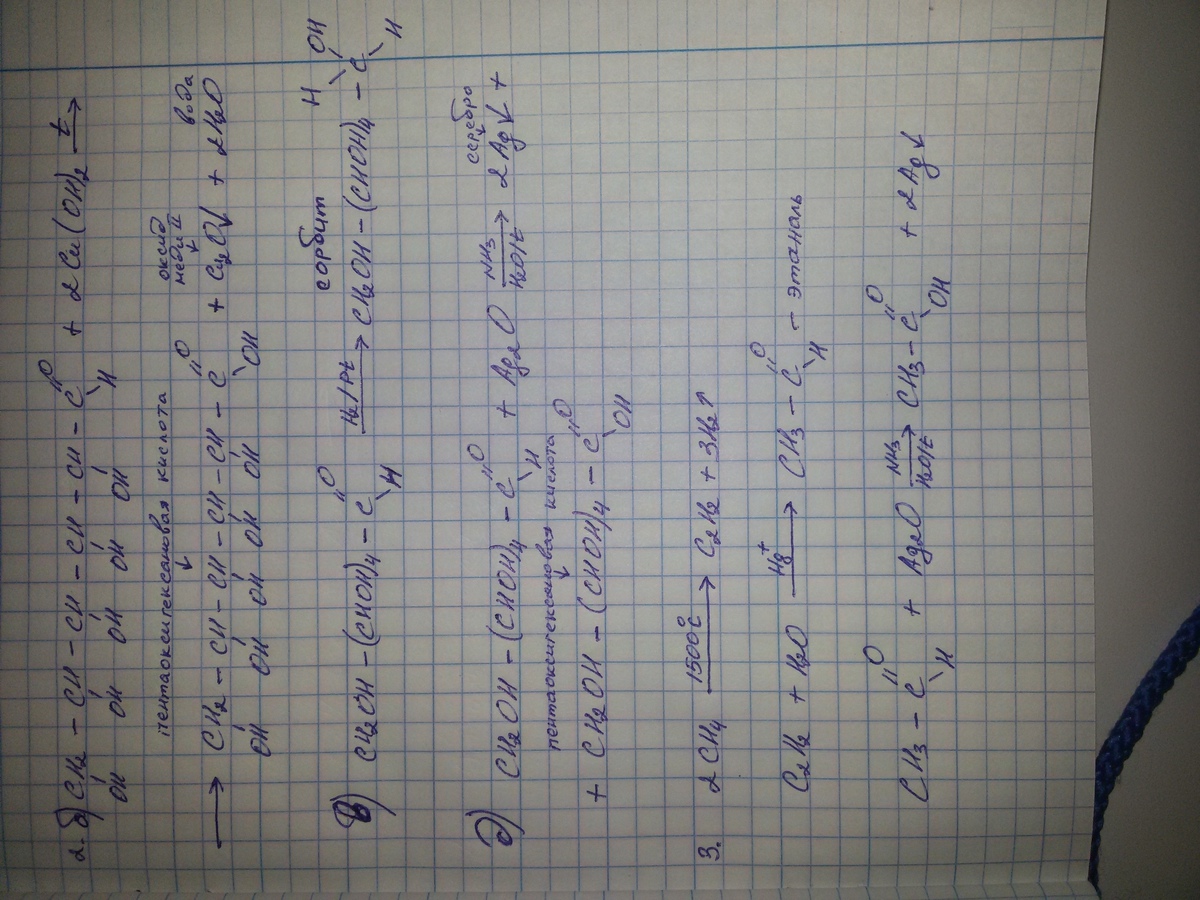 2. б) CH₂ – CH – CH – CH – CH – C =O + 2Cu(OH)₂ t→
OH OH OH OH OH H
пентаоксигексановая кислота оксид меди II вода
→ CH₂ – CH – CH – CH – CH – C =O + Cu₂O↓ + 2H₂O
OH OH OH OH OH OH
сорбит H
в) CH₂OH – (CHOH)₄ – C =O H₂/Pt→ CH₂OH – (CHOH)₄ – C OH
H H
серебро
д) CH₂OH – (CHOH)₄ – C =O + Ag₂O NH₃→ 2Ag↓ +
H H₂O/t
пентаоксигексановая кислота
+ CH₂OH – (CHOH)₄ – C =O
OH
3. 2CH₄ 1500°C→ C₂H₂ + 3H₂↑
C₂H₂ + H₂O Hg⁺→ CH₃ – C =O – этаналь
H
CH₃ – C =O + Ag₂O NH₃→ CH₃ – C =O + 2Ag↓
H H₂O/t OH